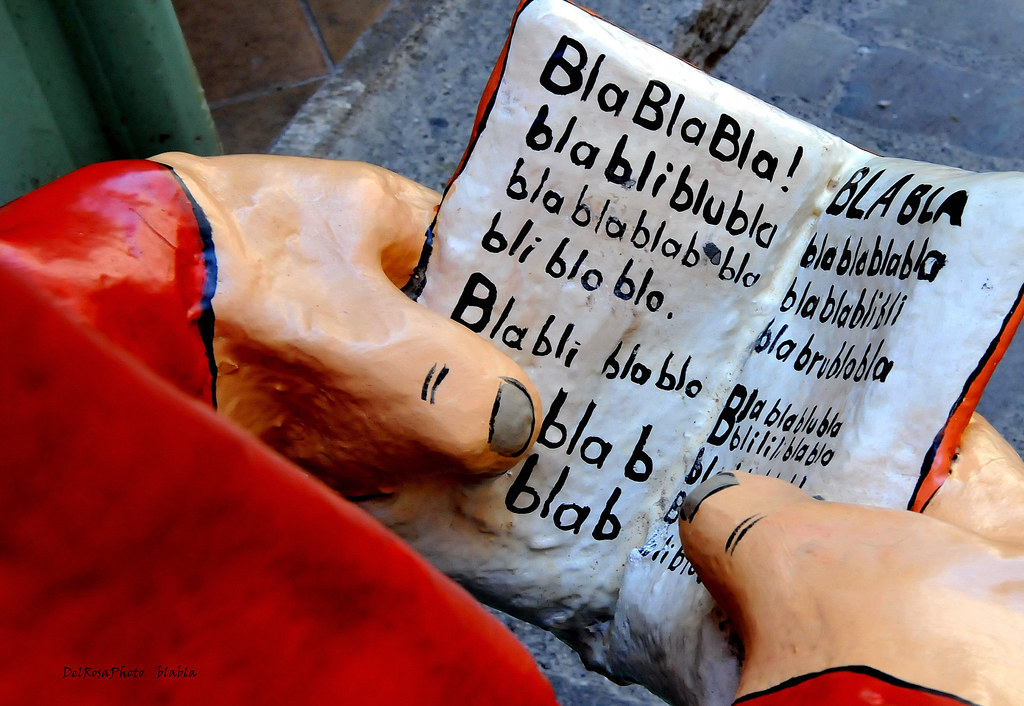 BlaBlaBla!
bla bli blu bla
bla bla blab bla
bli blo blo.
Bla bli bla blo
bla b
blab
BLA BLA
bla blo bla bla
bla bla bli bli
bla bru blo bla
Bla bla blu bla
bli li li bla bla
DelRosaPhoto blabla